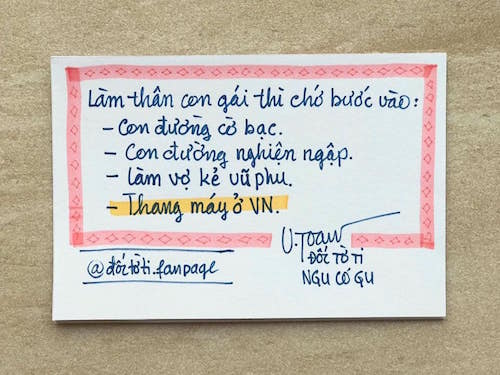 Làm thân con gái thì chớ bước vào:
- Con đường cờ bạc.
- Con đường nghiện ngập.
- Làm vợ kẻ vũ phu.
- Thang máy ở VN.
U.Toan
ĐỐC TỜ TI
NGU CỐ GU
@đốctờti.fanpage